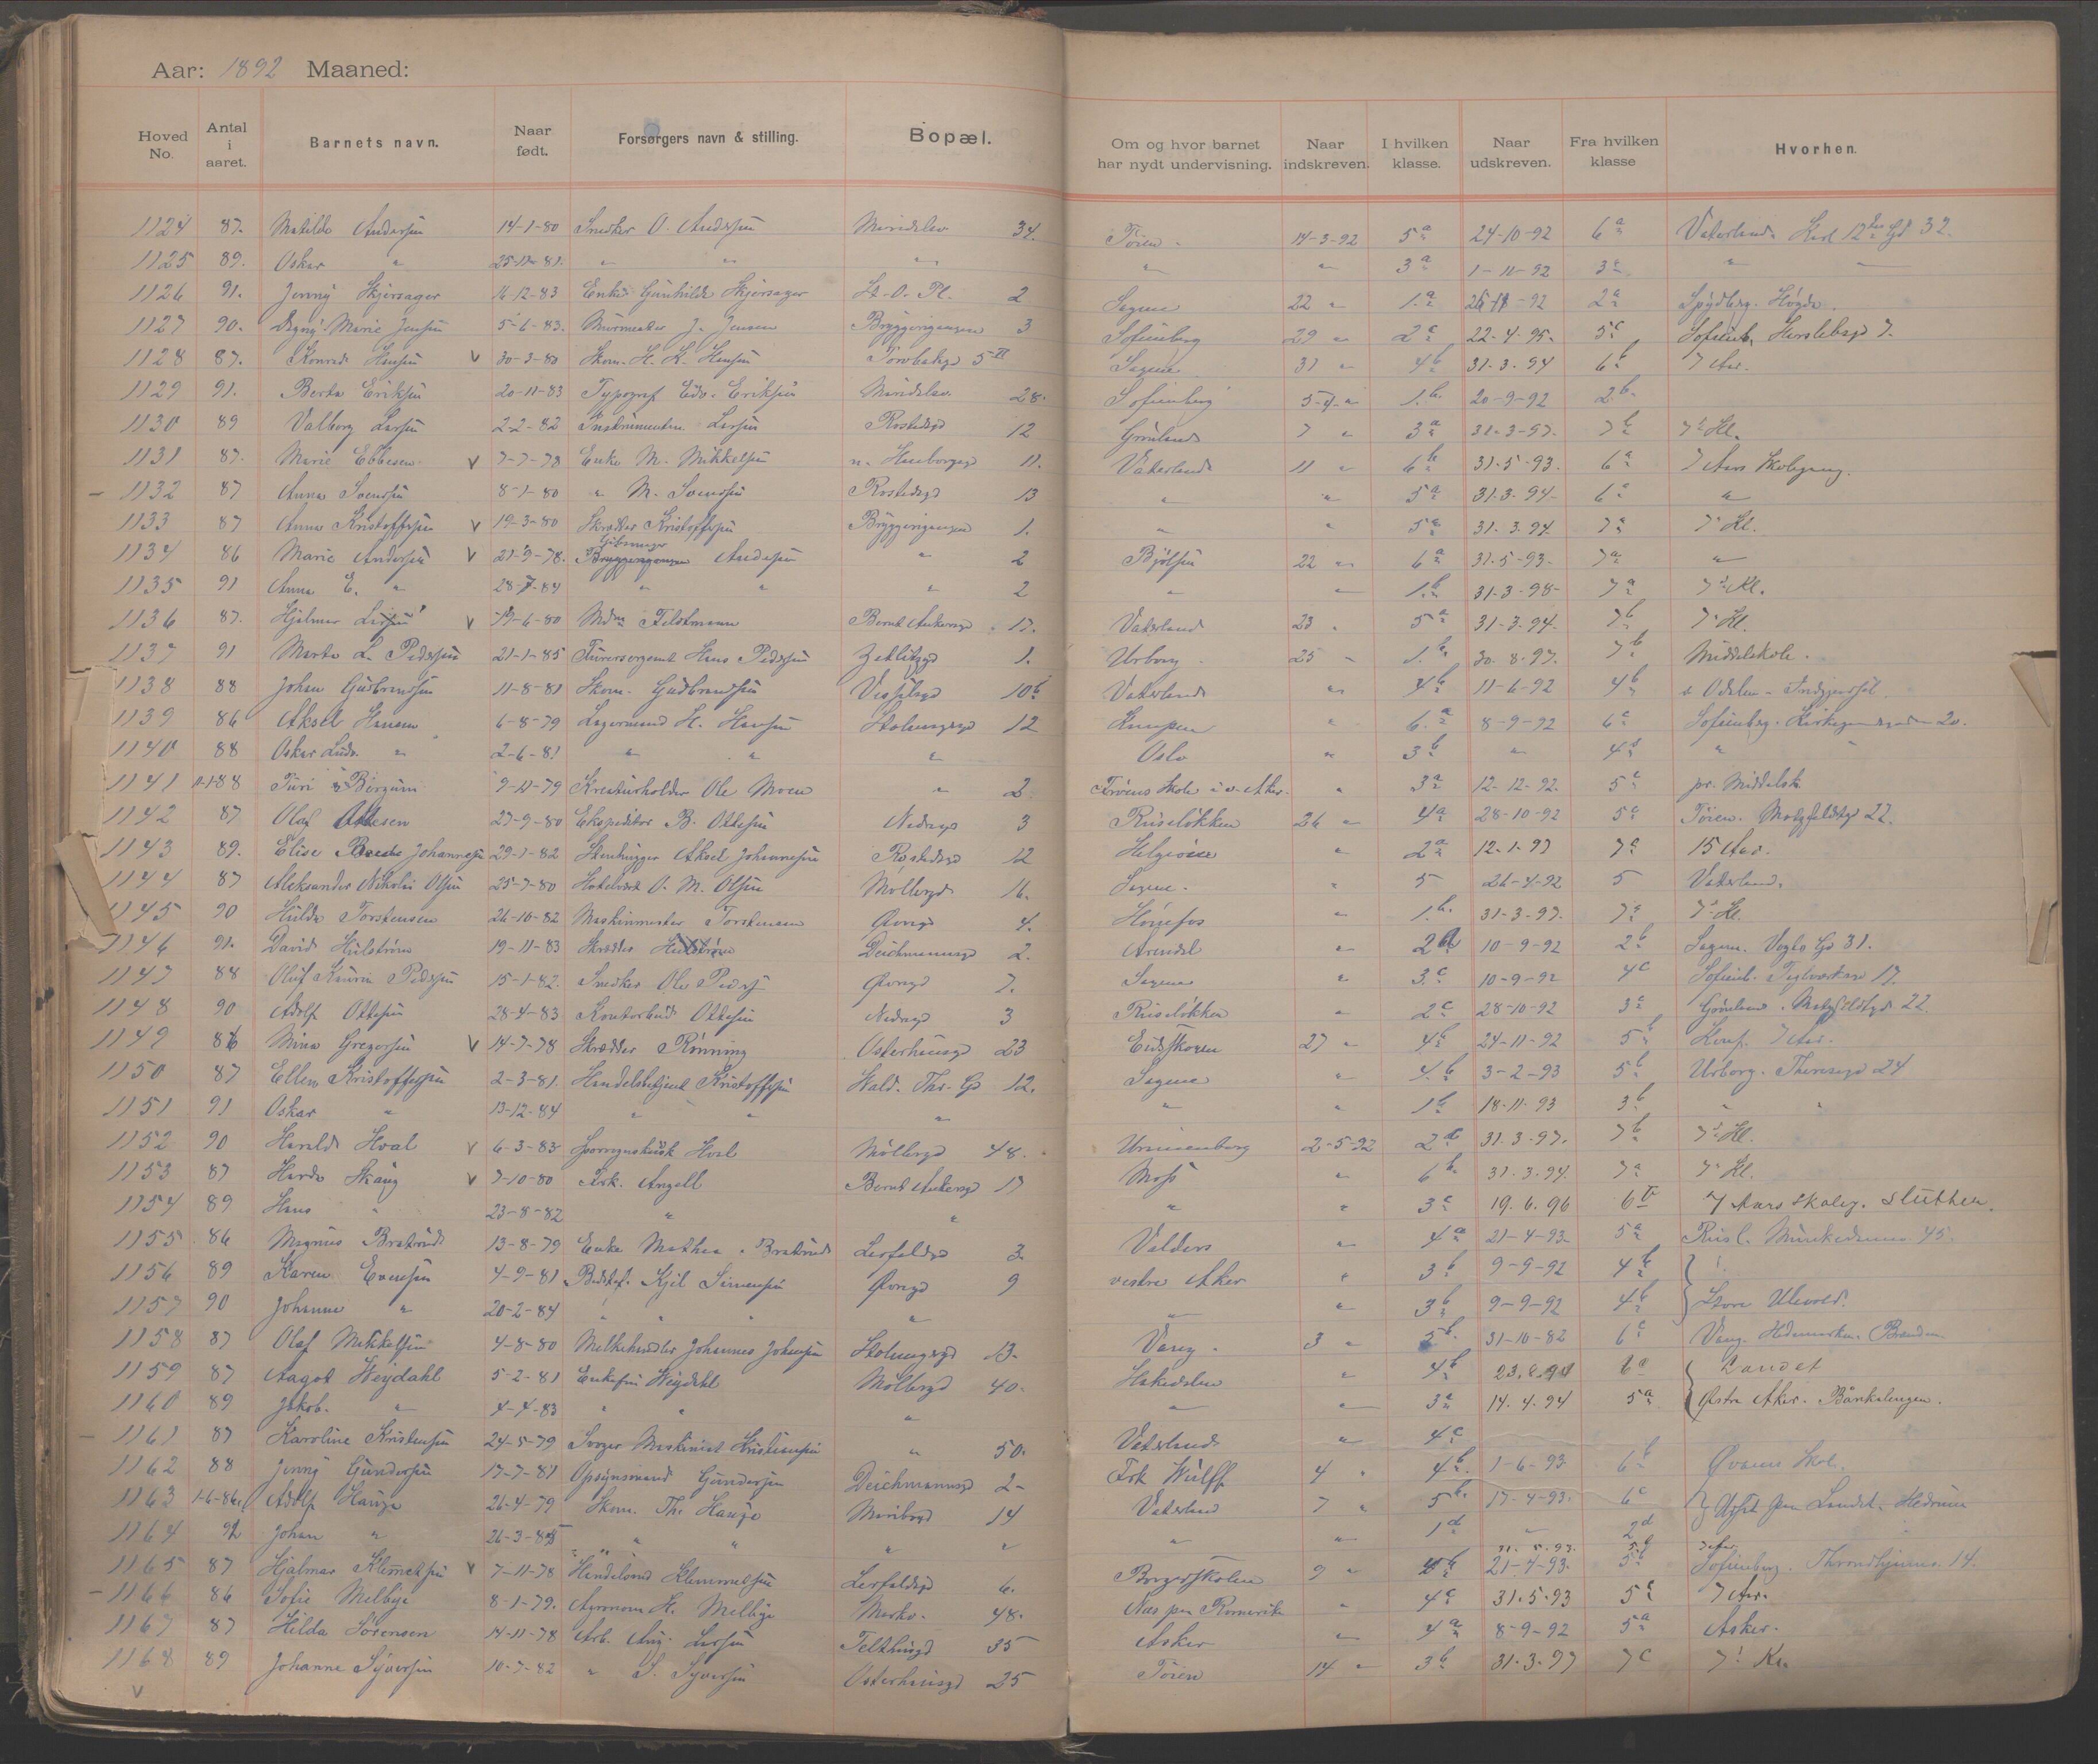 Aar: 1892 Maaned:
Hoved No. Antal i aaret. Barnets navn. Naar født. Forsørgers navn & stilling. Bopæl. Om og hvor barnet har nydt undervisning. Naar indskreven. I hvilken klasse. Naar udskreven. Fra hvilken klasse Hvorhen.
1124 87. Matilde Andersen 14-1-80 Snedker O. Andersen Maridalsv 34. Tøien 14-3-92 5a 24-10-92 6a Vaterland. Karl 12tes Gd 32.
1125 89. Oskar " 25-11-81. " " " " " 3a 1-11-92 3a " "
1126 91. Jenny Skjørsager 16-12-83 Enke Gunhilde Skjørsager St. O. Pl. 2 Sagene 22 " 1.a 26-11-92 2a Spydberg. Høyda.
1127 90. Dagny Marie Jensen 5-6-83. Murmester J. Jensen Bryggerigangen 3 Sofienberg 29 " 2c 22-4-95. 5c Sofienb. Herslebsgd 7.
1128 87. Konrad Hansen v 30-3-80 Skom. H. K. Hansen Torvbakgd 5 II Sagene 31 " 4b 31.3.94 6b 7 Aar.
1129 91. Berta Eriksen 20-11-83 Typograf Edv. Eriksen Maridalsv. 28. Sofienberg 5-4-" 1.b. 20-9-92 2b.
1130 89 Valborg Larsen 2-2-82 Instrumentm. Larsen Rostedsgd 12 Grønland 7 " 3a 31-3-97. 7b 7de Kl.
1131 87. Marie Ebbesen v 7-7-78 Enke M. Mikkelsen n. Hausborgsgd 11. Vaterland 11 " 6b 31.5-93. 6a 7 Aars Skolegang.
- 1132 87 Anna Svendsen 8-1-80 " M. Svendsen Rostedsgd 13 " " 5a 31.3.94. 6a "
1133 87 Anna Kristoffersen v 19-3-80 Skrædder Kristoffersen Bryggerigangen 1. " " 5a 31.3.94. 7a 7de Kl.
1134 86 Marie Andersen v 21-9-78. Andersen " 2 Bjølsen 22 " 6a 31.5-93. 7a "
1135 91 Anna E. " 28-7-84 " " " 2 " " 1.b. 31.3-98- 7a 7de Kl.
1136 87. Hjalmar Larsen v 19-6-80 Mdm Feldtmann Bernt Ankersgd. 17. Vaterland 23 " 5a 31-3.94. 7b 7de Kl.
1137 91 Marta L. Pedersen 21-1-85 Hans Pedersen Zetlitzgd 1. Uraborg. 25 " 1.b. 30.8.97. 7b Middelskole.
1138 88 Johan Gudbrandsen 11-8-81 Skom. Gudbrandsen Vesselsgd 10b Vaterland " 4b 11-6-92 4b
1139 86 Aksel Hansen 6-8-79 Lagermand H. Hansen Stolmagergd 12 Kampen " 6.a 8-9-92 6c Sofienberg. 20.
1140 88 Oskar Ludv. " 2-6-81 " " " Oslo " 3b " 4d " "
1141 11-1-88 Turi Børzum 9-11-79 Kreaturholder Ole Moen " 2. Frøens Skole i v. Aker. " 3a 12-12-92. 5c pr. Middelsk.
1142 87 Olaf Ottesen 27-9-80 Ekspeditør B. Ottesen Nedregd 3 Ruseløkken 26 " 4a 28-10-92 5a Tøien. Motzfeldtsgd 22.
1143 89. Elise Johannesen 29-1-82 Stenhugger Aksel Johannesen Rostedsgd 12 Helgerøen " 2a 12.1.97 7a 15 Aar.
1144 87 Aleksander Nikolai Olsen 25-7-80 Hotelvært O. M. Olsen Møllergd 16. Sagene. " 5 26-4-92 5 Vaterland.
1145 90 Hulda Torstensen 26-10-82 Maskinmester Torstensen Øvregd 4. Hønefos " 1.b. 31-3-97. 7a 7de Kl.
1146 91. David Hulstrøm 19-11-83 Skrædder Hulstrøm Deichmannsgd 2. Arendal " 2b 10-9-92 2b Sagene. Vogts Gd 31.
1147 88 Oluf Laurin Pedersen 15-1-82. Snedker Ole Peders Øvregd 7. Sagene " 3.c 10-9-92 4c Sofienb. Teglverksgd 17.
1148 90 Adolf Ottesen 28-4-83 Kontorbud Ottesen Nedregd 3 Ruseløkken " 2c 28-10-92 3c Grønland. Motzfeldtsgd 22.
1149 86 Mina Gregersen v 14-7-78 Skrædder Rønning Osterhausgd 23 Eidsskogen 27 " 4b 24-11-92 5b Konf. 7 Aar.
1150 87 Ellen Kristoffersen 2-3-81. Handelsbetjent Kristoffersen Wald. Thr. Gd 12. Sagene " 4.b 3-2-93 5b Uraborg. Theresegd 24
1151 91 Oskar " 13-12-84 " " " " " 1b 18-11-93 3b " "
1152 90 Harald Hval v 6-3-83 Hval Møllergd 48. Uranienborg 2-5-92 2d 31.3.97. 7b 7de Kl.
1153 87 Harda Skaug v 7-10-80 Frk. Angell Bernt Ankersgd 17 Moss " 6b. 31.3.94. 7a 7de Kl.
1154 89 Hans " 23-8-82 " " " " 3c 19.6.96 6b 7 Aars Skoleg. Sluttken.
1155 86 Magnus Bratrud 13-8-79 Enke Mathea Bratrud Lerfaldsgd 3. Valders " 4a 21-4-93. 5a Rusl. Munkedamsv. 45.
1156 89 Karen Evensen 4-9-81 Kjel Simensen Øvregd 9 vestre Aker " 3b 9-9-92 4b }
1157 90 Johanne " 20-2-84 " " " " " 3b 9-9-92 4b } Store Ulevold.
1158 87 Olaf Mikkelsen 4-8-80 Melkehandler Johannes Johansen Stolmagergd 13. Vang. 3 " 5b. 31-10-82 6c Vang. Hedemarken.
1159 87 Aagot Heydahl 5-2-81 Enkefru Heydahl Møllergd 40. Hakedalen " 4b 23.8.94 6a { Landet
1160 89 Jakob. " 4-4-83 " " " " " 3a 14.4.94 5a { Østre Aker. Bånkalengen.
- 1161 87 Karoline Kristensen 24-5-79 Svoger Maskinist Kristiansen " 50. Vaterland " 4c
1162 88 Jenny Gundersen 17-7-81 Opsynsmand Gundersen Deichmannsgd 2- Frk Wulff 4 " 4b. 1-6-93. 6b Øvarns Skole.
1163 1-6-86. Adolf Hauge 26-4-79 Skom. Th. Hauge Maribogd 14 Vaterland 7 " 5b. 17-4-93. 6c } Landet. Hedrum
1164 92 Johan " 26-3-85 " " " " " " 1d " 2d
1165 87 Hjalmar Klemmetsen v 7-11-78 Klemmetsen Lerfaldsgd 6. Borgerskolen 9 " 4b 21-4-93. 5b Sofienberg. Throndhjemsv. 14.
- 1166 86 Sofie Melbye 8-1-79. Agronom H. Melbye Markv. 48. Næs paa Romerike " 4c 31.5.93 5c 7 Aar.
1167 87 Hilda Sørensen 14-11-78 Arb. Aug. Larsen Telthusgd 35 Asker " 4a 8-9-92 5a Asker.
1168 89 Johanne Syversen 10-7-82 " S. Syversen Osterhausgd 25 Tøien 14 " 3b 31.3.97 7c 7de Kl.
v